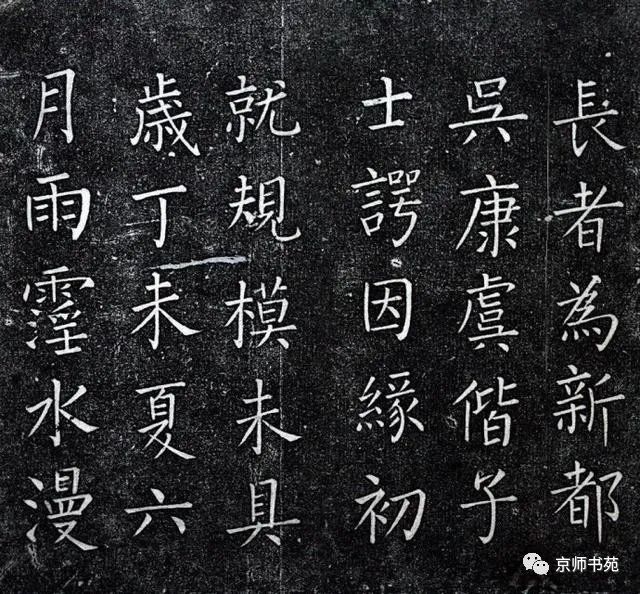 長者為新都
吳康虞偕子
士諤因緣初
就規模未具
歲丁未夏六
月雨霪水漫
京师书苑